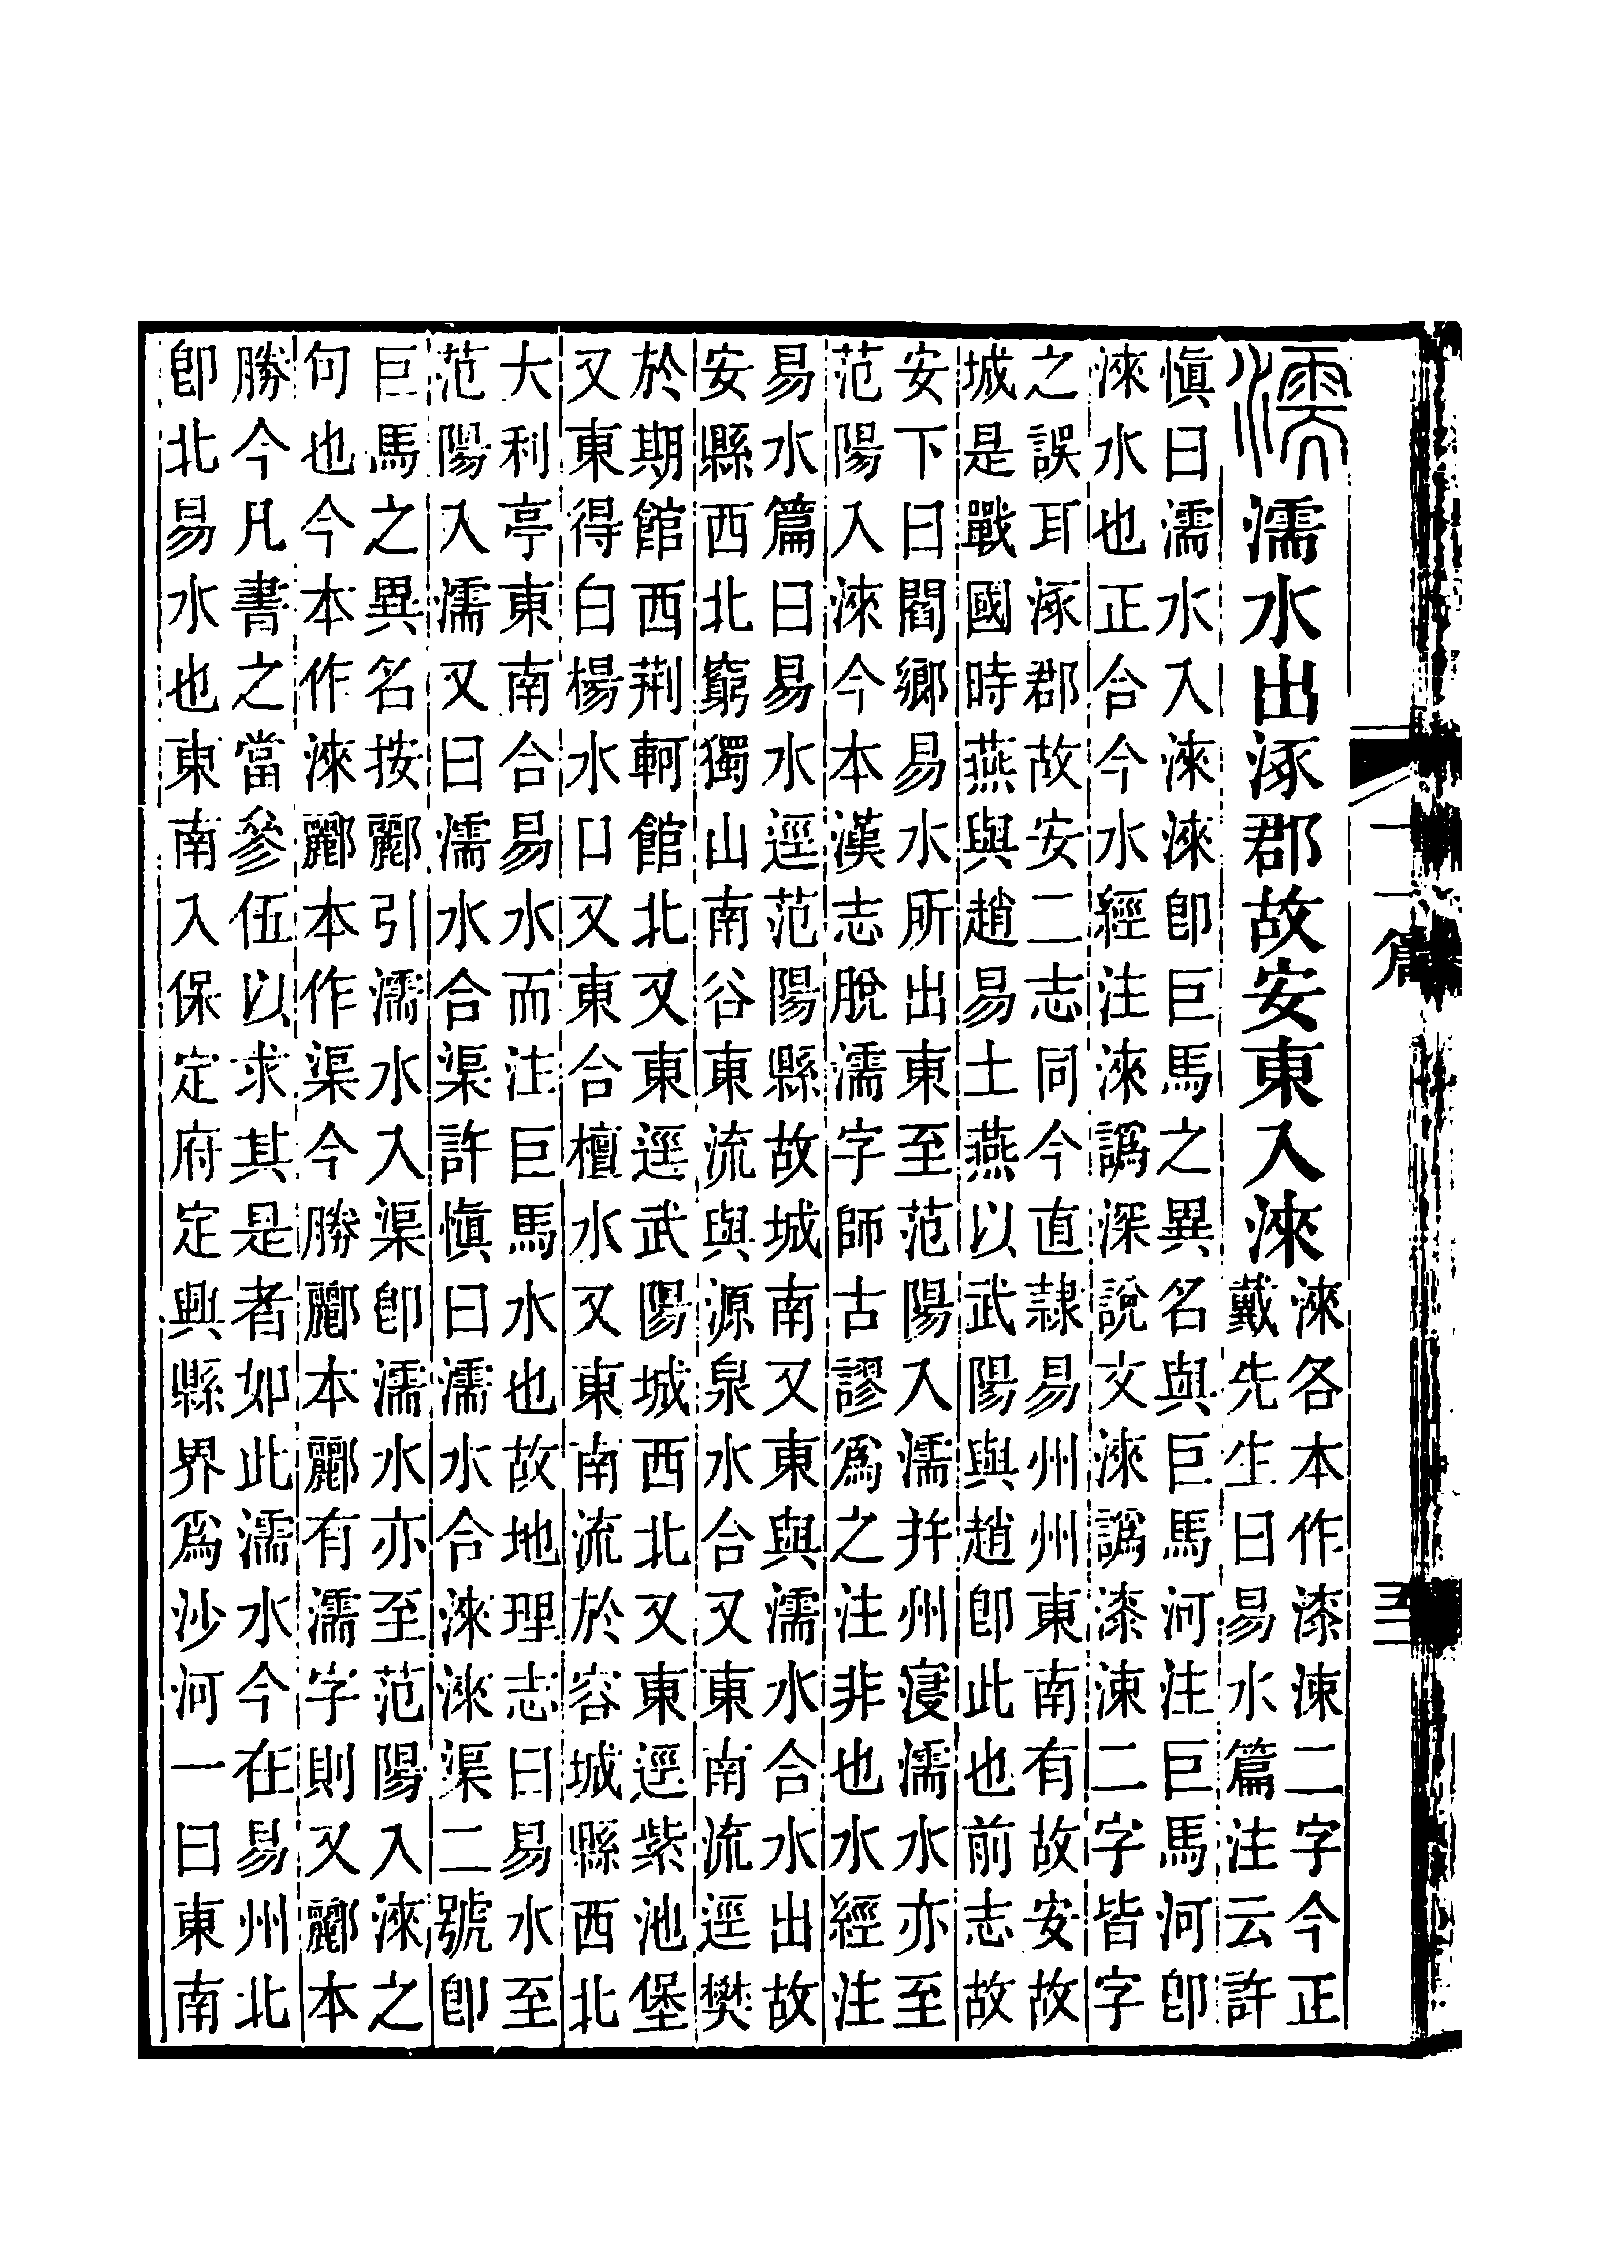 濡 濡水出涿郡故安東入淶
淶各本作漆涑二字今正
戴先生曰易水篇注云許
愼曰濡水入淶淶卽巨馬之異名與巨馬河注巨馬河卽
淶水也正合今水經注淶譌深說文淶譌漆涑二字皆字
之誤耳涿郡故安二志同今直隸易州州東南有故安故
城是戰國時燕與趙易土燕以武陽與趙卽此也前志故
安下曰閻鄉易水所出東至范陽入濡幷州寖濡水亦至
范陽入淶今本漢志脫濡字師古謬爲之注非也水經注
易水篇曰易水逕范陽縣故城南又東與濡水合水出故
安縣西北窮獨山南谷東流與源泉水合又東南流逕樊
於期館西荆軻館北又東逕武陽城西北又東逕紫池堡
又東得白楊水口又東合檀水又東南流於容城縣西北
大利亭東南合易水而注巨馬水也故地理志曰易水至
范陽入濡又曰濡水合渠許愼曰濡水合淶淶渠二號卽
巨馬之異名按酈引濡水入渠卽濡水亦至范陽入淶之
句也今本作淶酈本作渠今勝酈本酈有濡字則又酈本
勝今凡書之當參伍以求其是者如此濡水今在易州北
卽北易水也東南入保定府定興縣界爲沙河一曰東南